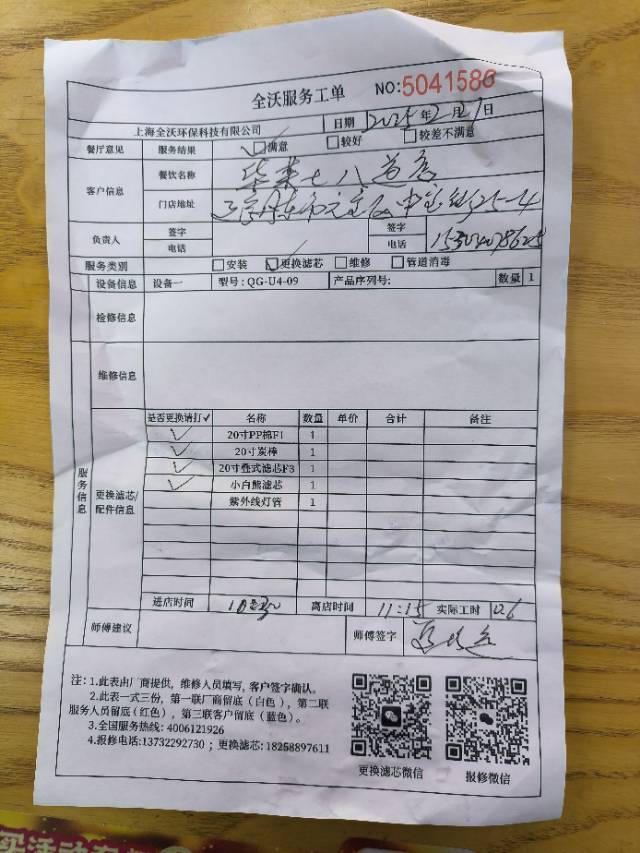 全沃服务工单 NO:5041586
上海全沃环保科技有限公司 日期 2025年2月21日
餐厅意见 服务结果 ✓ 满意 较好 较差不满意
客户信息 餐饮名称
门店地址 25-4
负责人 签字 签字
电话 电话
服务类别 安装 ✓ 更换滤芯 维修 管道消毒
设备信息 设备一 型号:QG-U4-09 产品序列号: 数量 1
检修信息
维修信息
服务信息
更换滤芯/配件信息
是否更换请打✓ 名称 数量 单价 合计 备注
✓ 20寸PP棉F1 1
✓ 20寸炭棒 1
✓ 20寸叠式滤芯F3 1
✓ 小白熊滤芯 1
紫外线灯管 1
进店时间 10:30 离店时间 11:15 实际工时
师傅建议 师傅签字
注: 1.此表由厂商提供,维修人员填写,客户签字确认。
2.此表一式三份,第一联厂商留底(白色),第二联
服务人员留底(红色),第三联客户留底(蓝色)。
3.全国服务热线: 4006121926
4.报修电话:13732292730 ; 更换滤芯: 18258897611
更换滤芯微信 报修微信
买活动